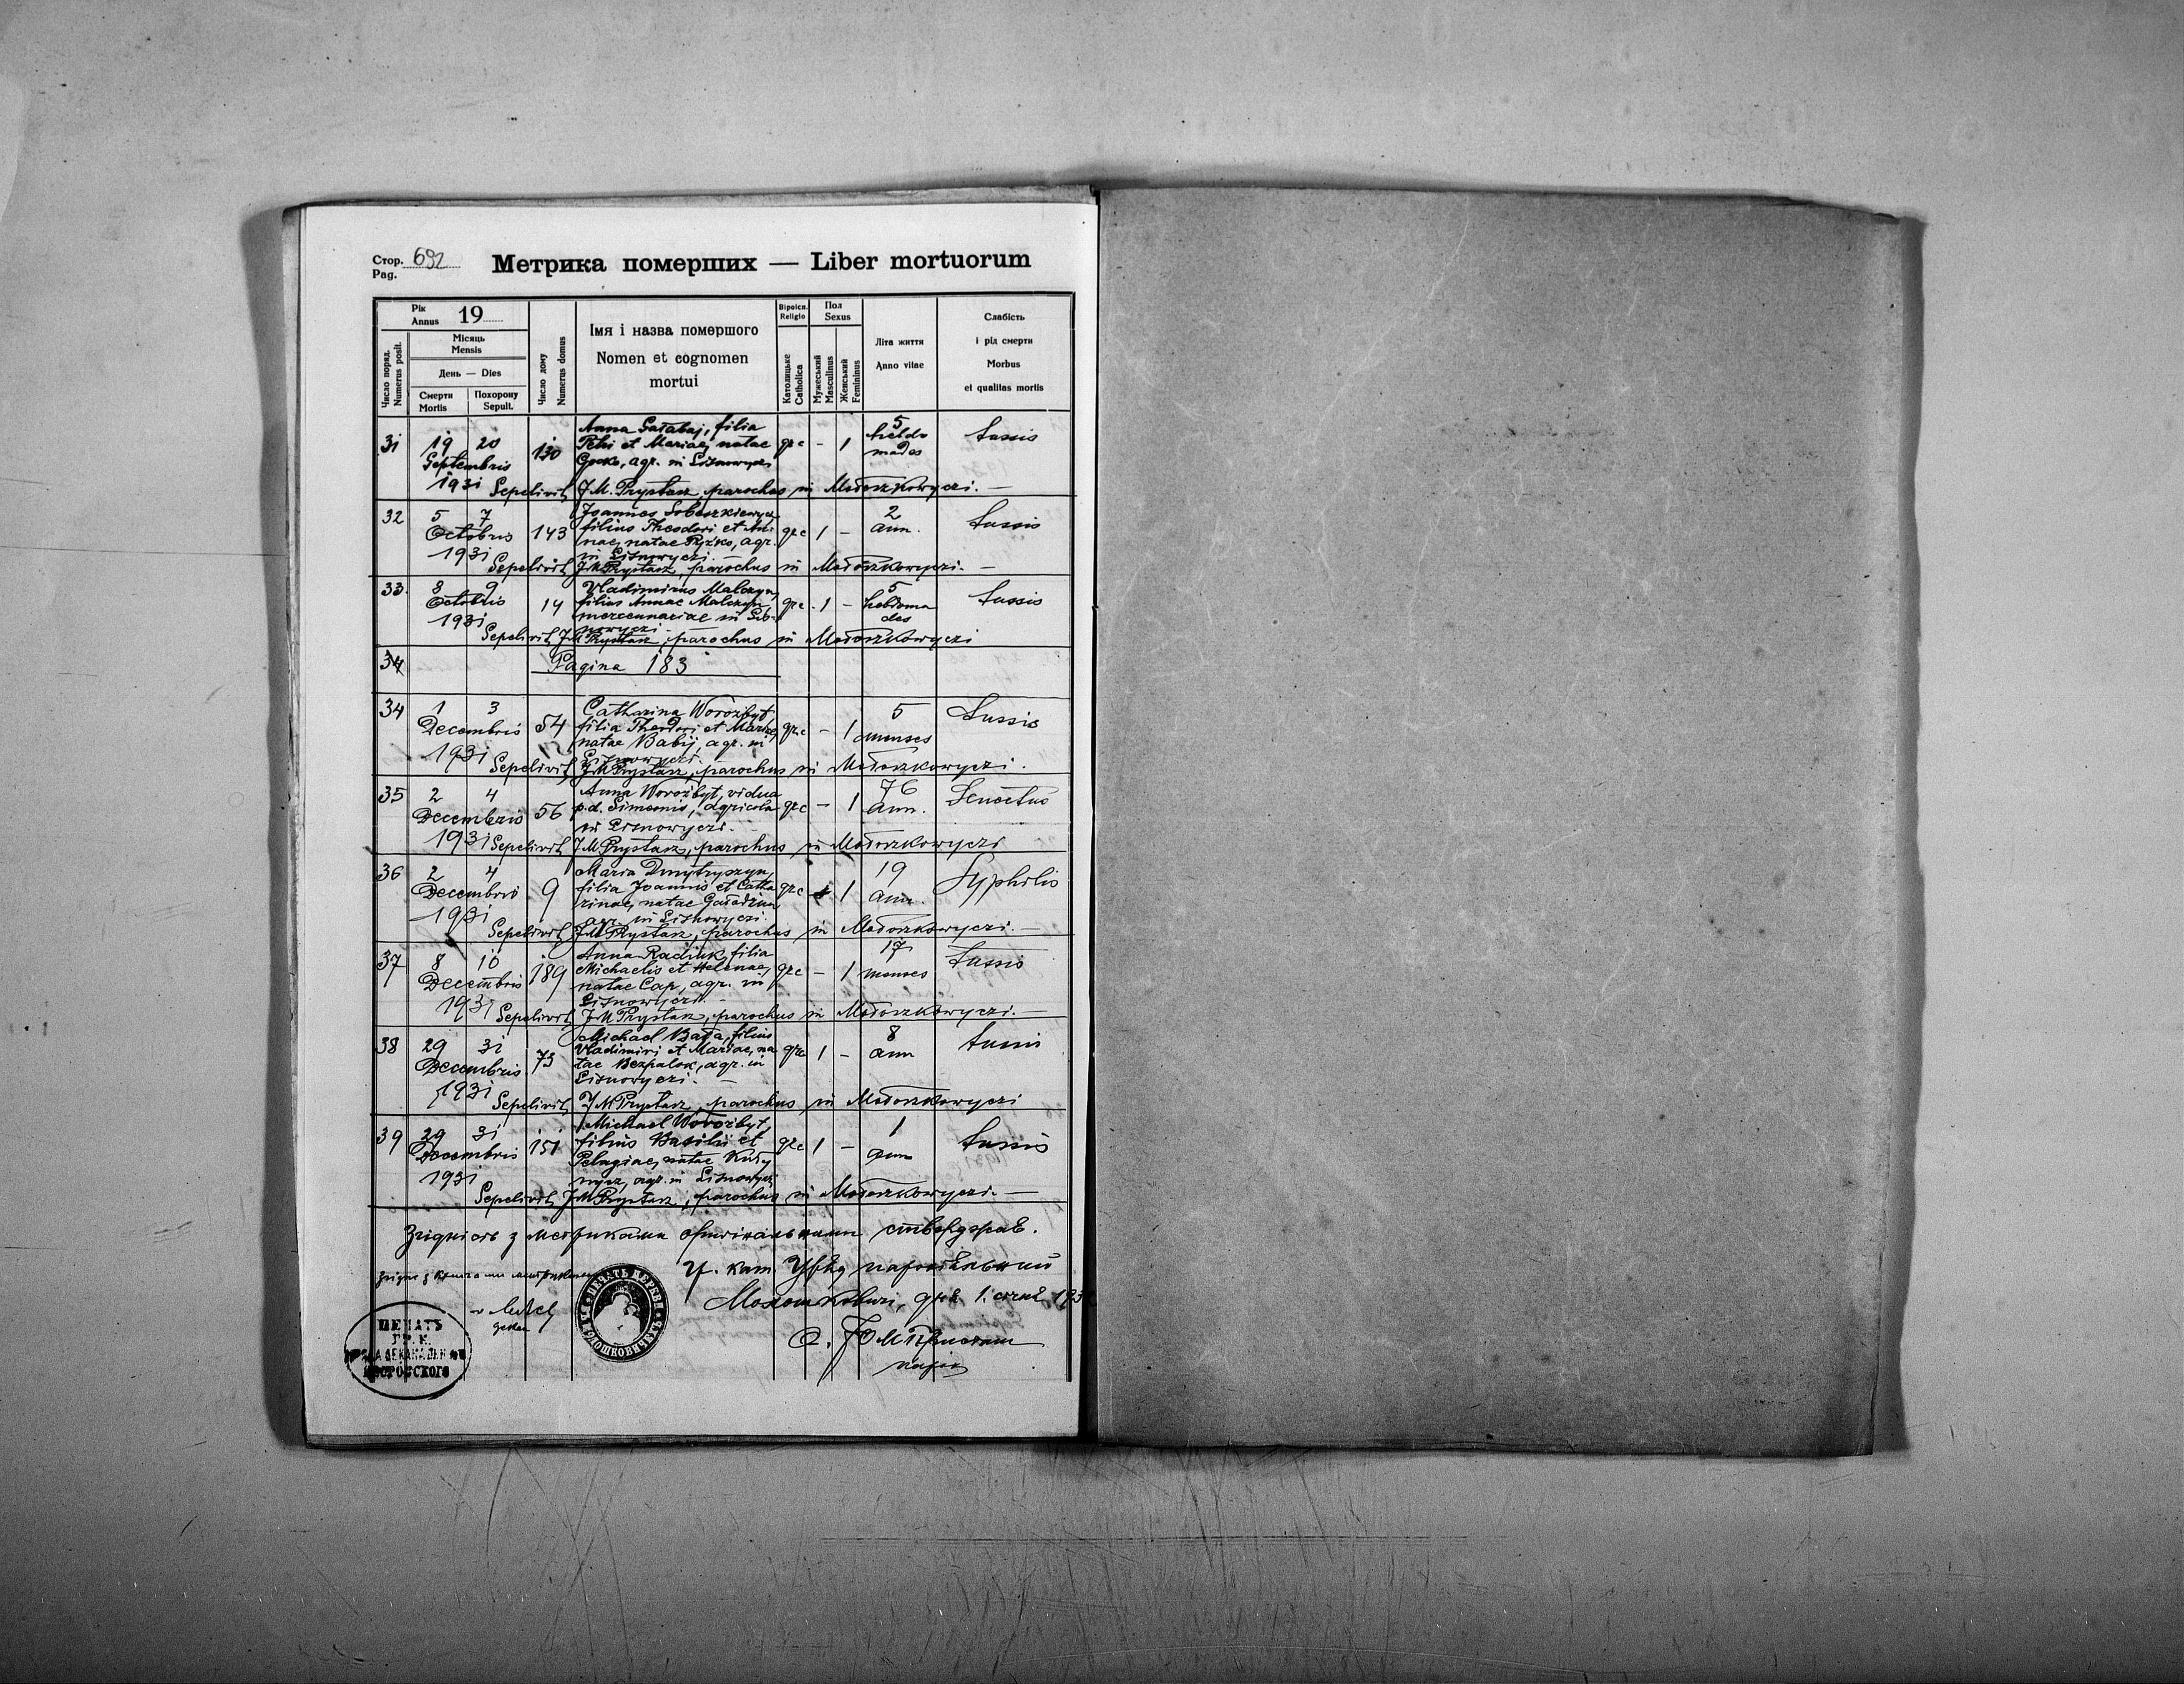 Стор. 692 Метрика померших — Liber mortuorum
Pag.
Рік
Annus 19
Місяць
Mensis
День — Dies
Смерти
Mortis
Похорону
Sepult.
Число поряд.
Numerus posit.
Число дому
Numerus domus
Імя і назва помершого
Nomen et cognomen
mortui
Віроісп.
Religio
Католицьке
Catholica
Пол
Sexus
Мужеський
Masculinus
Женський
Femininus
Літа життя
Anno vitae
Слабість
і рід смерти
Morbus
et qualitas mortis
31 19 20 Septembris 1931 130 gre - 1 5 hebdo mades tussis
Anna Gałabaj, filia
Petri et Mariae, natae
agr. in Lisnowyczi
Sepelivit J.M. Prystasz, parochus in Mołoszkowyczi. —
32 5 7 Octobris 1931 143 gre 1 - 2 ann. tussis
Joannes Soboszkiewycz
filius Theodori et An-
nae, natae Ryżko, agr.
in Lisnowyczi. —
Sepelivit J.M. Prystasz, parochus in Mołoszkowyczi. —
33. 8 9 Octobris 1931 14 gre. 1 - 5 hebdoma des tussis
Vladimirus Malczyn,
filius Annae Malczyn,
mercennariae in Lis-
nowyczi
Sepelivit J.M. Prystasz, parochus in Mołoszkowyczi
34 Pagina 183
34 1 3 Decembris 1931 54 gre - 1 5 menses tussis
Catharina Worożbyt
filia Theodori et Mariae,
natae Babij, agr. in
Lisnowyczi.
Sepelivit J.M. Prystasz, parochus in Mołoszkowyczi.
35 2 4 Decembris 1931 56 gre - 1 76 ann. Senectus
Anna Worożbyt, vidua
p.d. Simeonis, agricola
in Lisnowyczi. —
Sepelivit J.M. Prystasz, parochus in Mołoszkowyczi
36 2 4 Decembris 1931 9 gre 1 19 ann. Syphilis
Maria Dmytryszyn,
filia Joannis et Catha
rinae, natae
agr. in Lisnowyczi
Sepelivit J.M. Prystasz, parochus in Mołoszkowyczi. —
37 8 10 Decembris 1931 189 gre - 1 17 menses tussis
Anna Radiuk, filia
Michaelis et Helenae,
natae Cap, agr. in
Lisnowyczi. —
Sepelivit J.M. Prystasz, parochus in Mołoszkowyczi. —
38 29 31 Decembris 1931 73 gre 1 - 8 ann tussis
Michael Bața, filius
Vladimiri et Mariae, na
tae Bezpalok, agr. in
Lisnowyczi. —
Sepelivit J.M. Prystasz, parochus in Mołoszkowyczi
39 29 31 Decembris 1931 151 gre 1 - 1 ann tussis
Michael Worożbyt,
filius Basilii et
Pelagiae, natae
agr. in Lisnowyczi
Sepelivit J.M. Prystasz, parochus in Mołoszkowyczi. —
Згідність з метриками оригінальними стверджає.
Гр. кат. Уряд парохіяльний
Молошковичі, дня 1. січня 193
о. Ю М Присташ
парох
ПЕЧАТЬ
ГР. К.